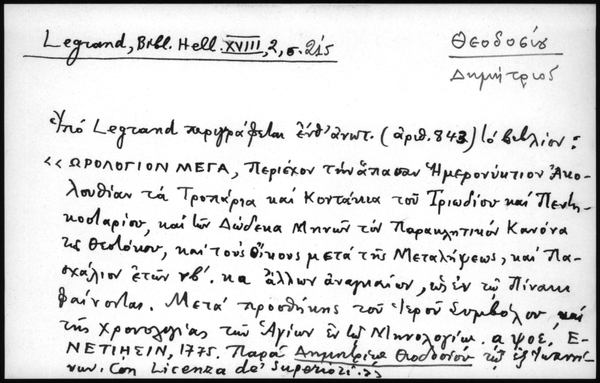 Legrand, Bibl. Hell. XVIII, 2, σ. 215
Θεοδοσίου
Δημήτριος
Ὑπό Legrand περιγράφεται ἐνθ' ἀνωτ. (ἀριθ. 843) τό βιβλίον:
<< ΩΡΟΛΟΓΙΟΝ ΜΕΓΑ, Περιέχον τήν ἅπασαν Ἡμερονύκτιον Ἀκο-
λουθίαν τά Τροπάρια καί Κοντάκια τοῦ Τριωδίου καί Πεντη-
κοσταρίου, καί τῶν Δώδεκα Μηνῶν τόν Παρακλητικόν Κανόνα
τῆς Θεοτόκου, καί τούς Οἴκους μετά τῆς Μεταλήψεως, καί Πα-
σχάλιον ἐτῶν νβ'. κα ἄλλων ἀναγκαίων, ὡς ἐν τῷ Πίνακι
φαίνονται. Μετά προσθήκης τοῦ Ἱεροῦ Συμβόλου, καί
τῆς Χρονολογίας τῶν Ἁγίων ἐν τῷ Μηνολογίῳ. αψοε, Ε-
ΝΕΤΙΗΣΙΝ, 1775. Παρά Δημητρίῳ Θεοδοσίου τῷ ἐξ Ἰωαννί-
νων. Con Licenza de' Superiori. >>